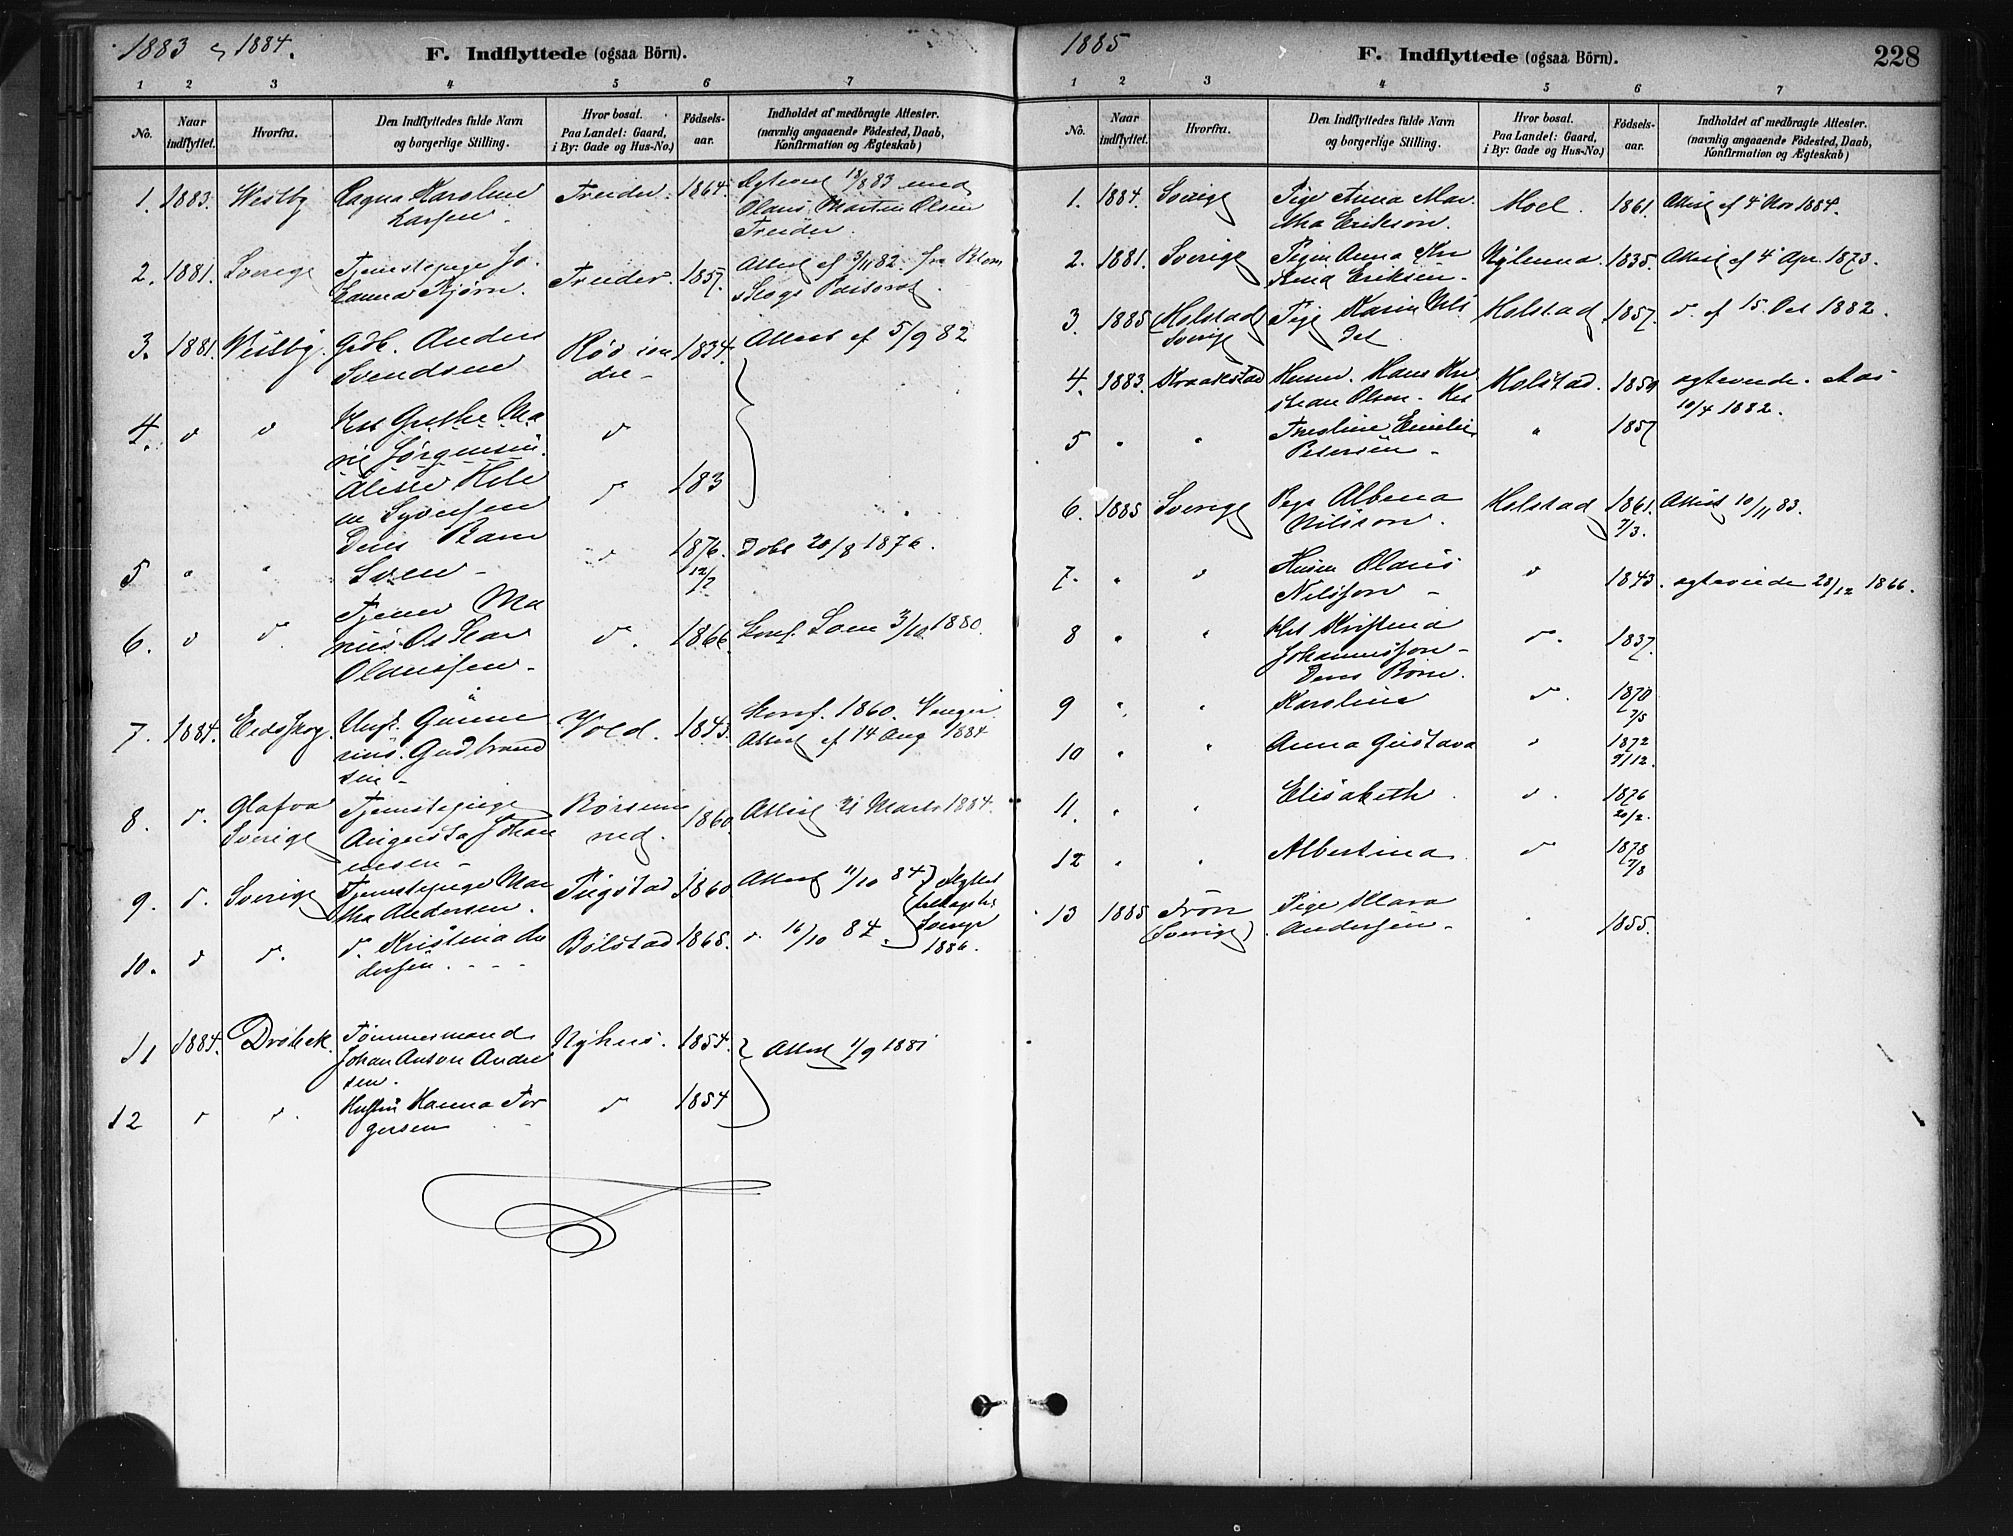 1883 & 1884.
F. Indflyttede (ogsaa Börn).
1 2 3 4 5 6 7
No.
Naar indflyttet.
Hvorfra.
Den Indflyttedes fulde Navn og borgerlige Stilling.
Hvor bosat. Paa Landet: Gaard, i By: Gade og Hus-No.)
Födsels-aar.
Indholdet af medbragte Attester. (navnlig angaaende Födested, Daab, Konfirmation og Ægteskab)
1. 1883. Vestby Karoline Treider. 1864. 18/8 83 med
Larsen Olaus Martin Olsen
Treider.
2. 1881. Sverige Tjenestepige Jo- Treider. 1857. Attest af 3/11 82. fra
hanna Bjørn. Skogs Pastorat.
3. 1881. Vestby. Gdb. Anders Rød søn 1834. Attest af 5/9 82
Svendsen dre
4. d d Grethe Ma d
rie Jørgensen.
d 183
Deres Barn
5 " " Sven d 1876. 12/7 Døbt 20/8 1876.
6. d d. Tjener Ma
rius Oskar d. 1866. Conf. 3/10 1880.
Olaussen
7. 1884. Eidskog. Ungk. Gunne Vold. 1843. Conf. 1860. Vinger
rius Gudbrand Attest af 14 Aug 1884
sen
8. d. Glafva Tjenestepige 1860. Attest 21 Marts 1884.
Sverige Augusta Johan
nesen
9. d. Sverige Tjenestepige Mar Pugstad 1860 Attest 11/10 84 flyttet
tha Andersen. tilbage til
10. d d. d. Kristina An Bølstad 1865. d. 16/10 84. Sverige
dersen. 1886.
11 1884. Drøbak. Tømmermand Nyhus. 1854. Attest 1/9 1881
Johan Anton Andre
sen.
12 d d. Hustru Hanna Tor d 1854
gersen
1885
F. Indflyttede (ogsaa Börn).
228
1 2 3 4 5 6 7
No.
Naar indflyttet.
Hvorfra.
Den Indflyttedes fulde Navn og borgerlige Stilling.
Hvor bosat. Paa Landet: Gaard, i By: Gade og Hus-No.)
Födsels-aar.
Indholdet af medbragte Attester. (navnlig angaaende Födested, Daab, Konfirmation og Ægteskab)
1. 1884. Sverige Pige Anna Mar Moel. 1861. Attest af 4 Nov 1884.
tha Erikson.
2. 1881. Sverige Pigen Anna Kri 1835. Attest af 4 Apr. 1873.
stina Eriksen.
3. 1885 (Holstad Pige Karin Nils Holstad. 1857. d. af 15 Oct 1882.
Sverige dat
4. 1883. Kraakstad Husm. Hans Kri Holstad. 1859 ægteviede. Aas
stian Olsen. Hst 10/4 1882.
5 " " Emilie " 1857
Petersen
6. 1885 Sverige Pige Albena Holstad 1861. 7/3. Attest 10/11 83.
Nilsson.
7. " d Husm Olaus d 1843. ægteviede 28/12 1866.
Nilsson
8 " " Hst Kristina d. 1837.
Johannesson
Deres Børn.
9 " " Karoline d. 1870 7/5
10 " " Anna Gustava d 1872 9/12.
11. " " Elisabeth d. 1876 20/2.
12 " " Albertina d 1878 7/8
13 1885 Trön Pige Klara " 1855.
(Sverige) Andersen.